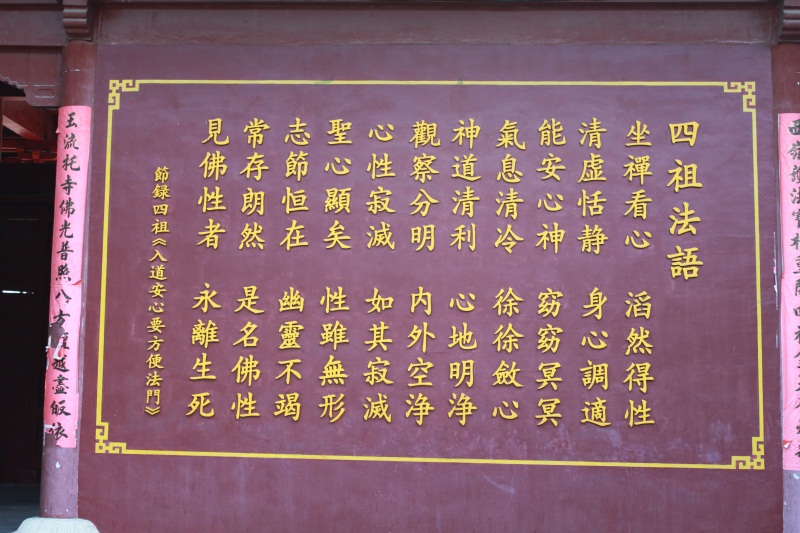 四祖法語
坐禪看心 滔然得性
清虛恬静 身心調適
能安心神 窈窈冥冥
氣息清冷 徐徐斂心
神道清利 心地明浄
觀察分明 内外空浄
心性寂滅 如其寂滅
聖心顯矣 性雖無形
志節恒在 幽靈不竭
常存朗然 是名佛性
見佛性者 永離生死
節録四祖《入道安心要方便法門》
玉流托寺佛光普照八方越盡皈依